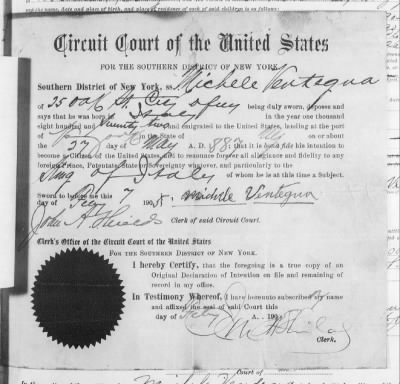 and the name, date and place of birth, and place of residence of each of said children is as follows:
Circuit Court of the United States
FOR THE SOUTHERN DISTRICT OF NEW YORK.
Southern District of New York, ss. Michele Ventegna
of City of NY being duly sworn, deposes and
says that he was born in Italy in the year one thousand
eight hundred and Seventy two and emigrated to the United States, landing at the port
of in the State of on or about
the 27 day of May A. D. that it is bona fide his intention to
become a Citizen of the United States, and to renounce forever all allegiance and fidelity to any
foreign Prince, Potentate, State or Sovereignty whatever, and particularly to the
King of Italy of whom he is at this time a Subject.
Sworn to before me this 7
day of 190 Michele Ventegna
John A Shields Clerk of said Circuit Court.
Clerk's Office of the Circuit Court of the United States
FOR THE SOUTHERN DISTRICT OF NEW YORK.
I hereby Certify, that the foregoing is a true copy of an
Original Declaration of Intention on file and remaining of
record in my office.
In Testimony Whereof, I have hereunto subscribed my name
and affixed the seal of said Court this
day of A. 190
Clerk.
Court of